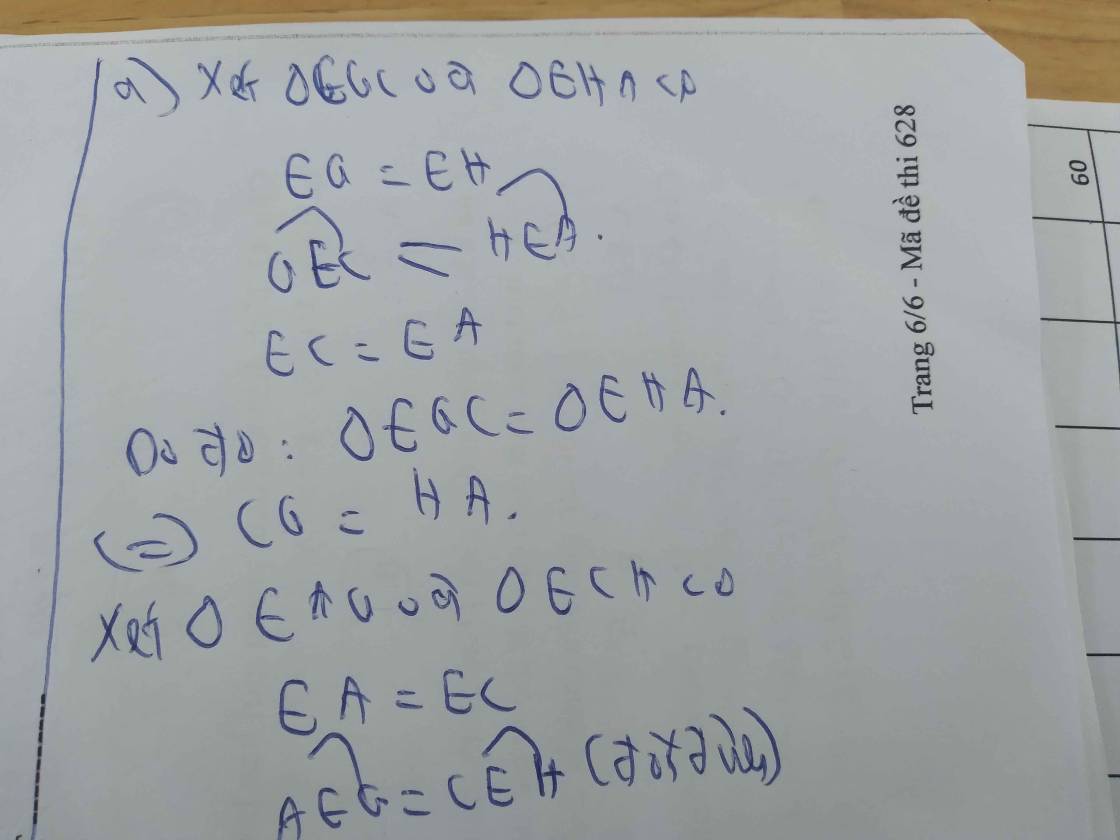 a) Xét ΔEGC và ΔEHA có
EG = EH
GEC = HEA.
EC = EA
Do đó: ΔEGC = ΔEHA.
(=) CG = HA.
Xét Δ EAG và ΔECH có
EA = EC
AEG = CEH (đối đỉnh)
Trang 6/6 - Mã đề thi 628
60